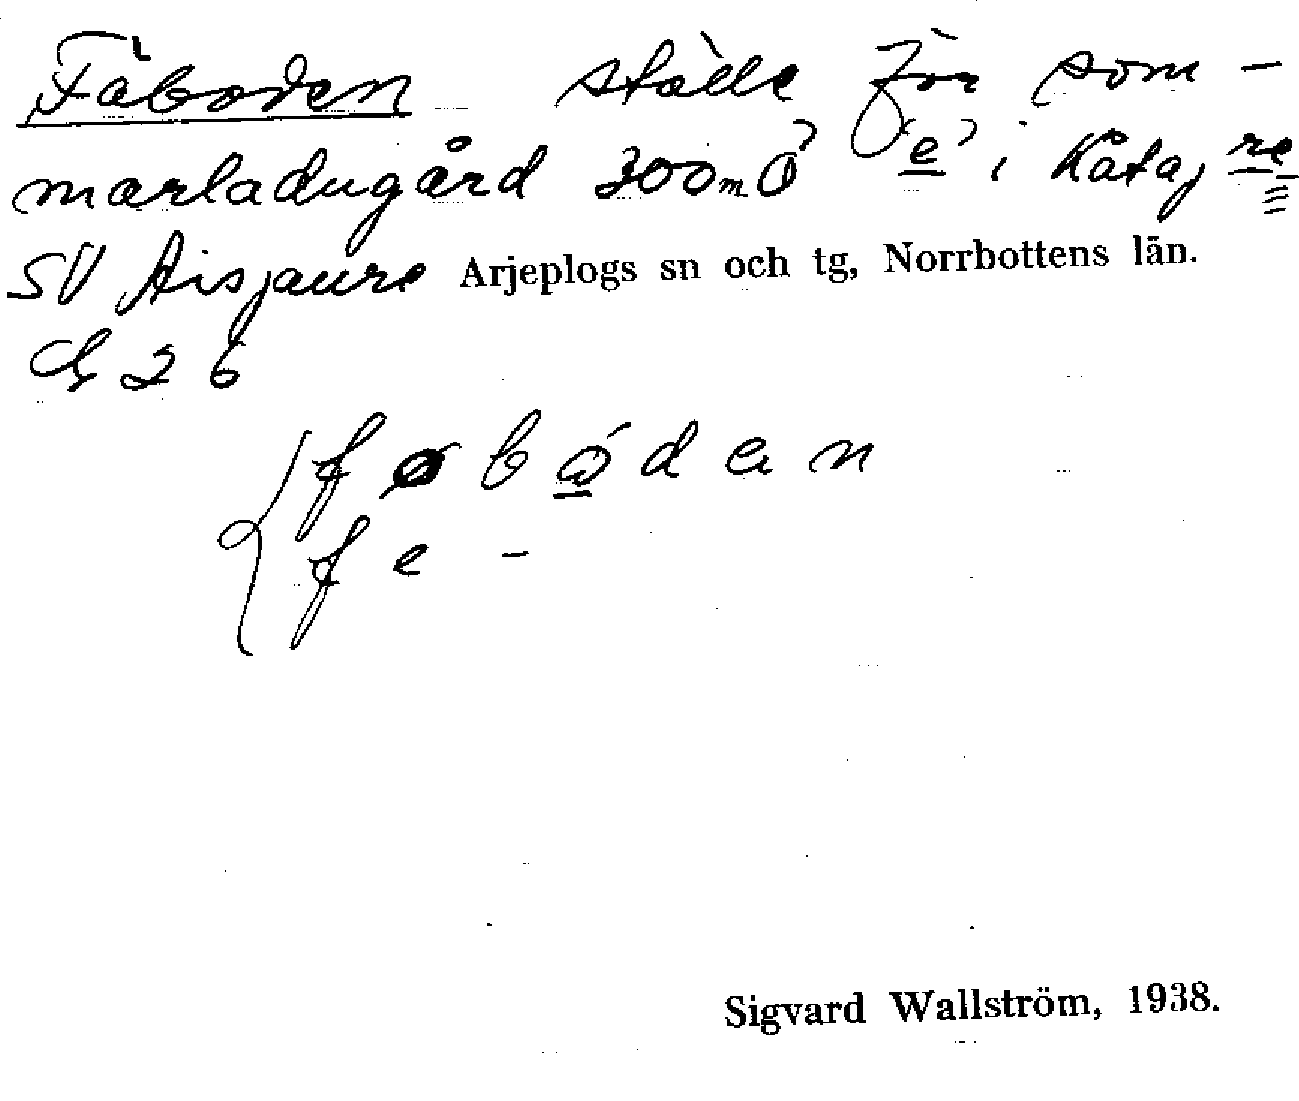 Fäboden ställe för som-
marladugård 300 m Ö 'e' i Kåtajre
SV Aisjaure Arjeplogs sn och tg, Norrbottens län.
26
f ø b ó d e n
f e -
Sigvard Wallström, 1938.